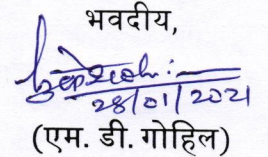 भवदीय,
28/01/2021
(एम. डी. गोहिल)